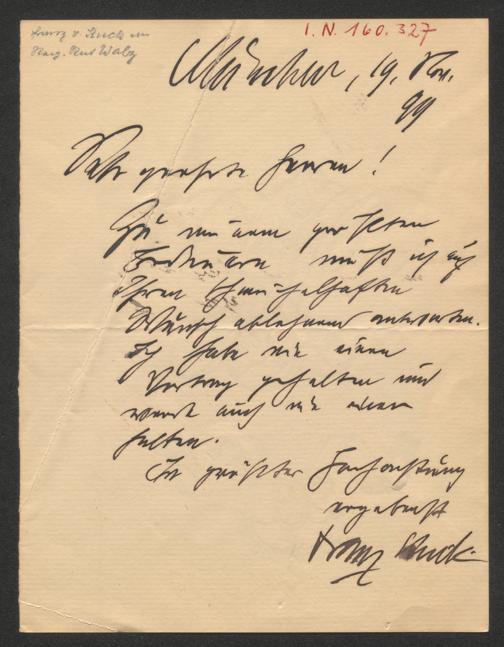 Franz v. Stuck an
I. N. 160.327
München, 19. Nov.
99
Sehr geehrte Herren!
Zu meinem größten
Bedauern muß ich auf
Ihren schmeichelhaften
Wunsch ablehnend antworten.
Ich habe nie einen
Vortrag gehalten und
werde auch nie einen
halten.
In größter Hochachtung
ergebenst
Franz Stuck